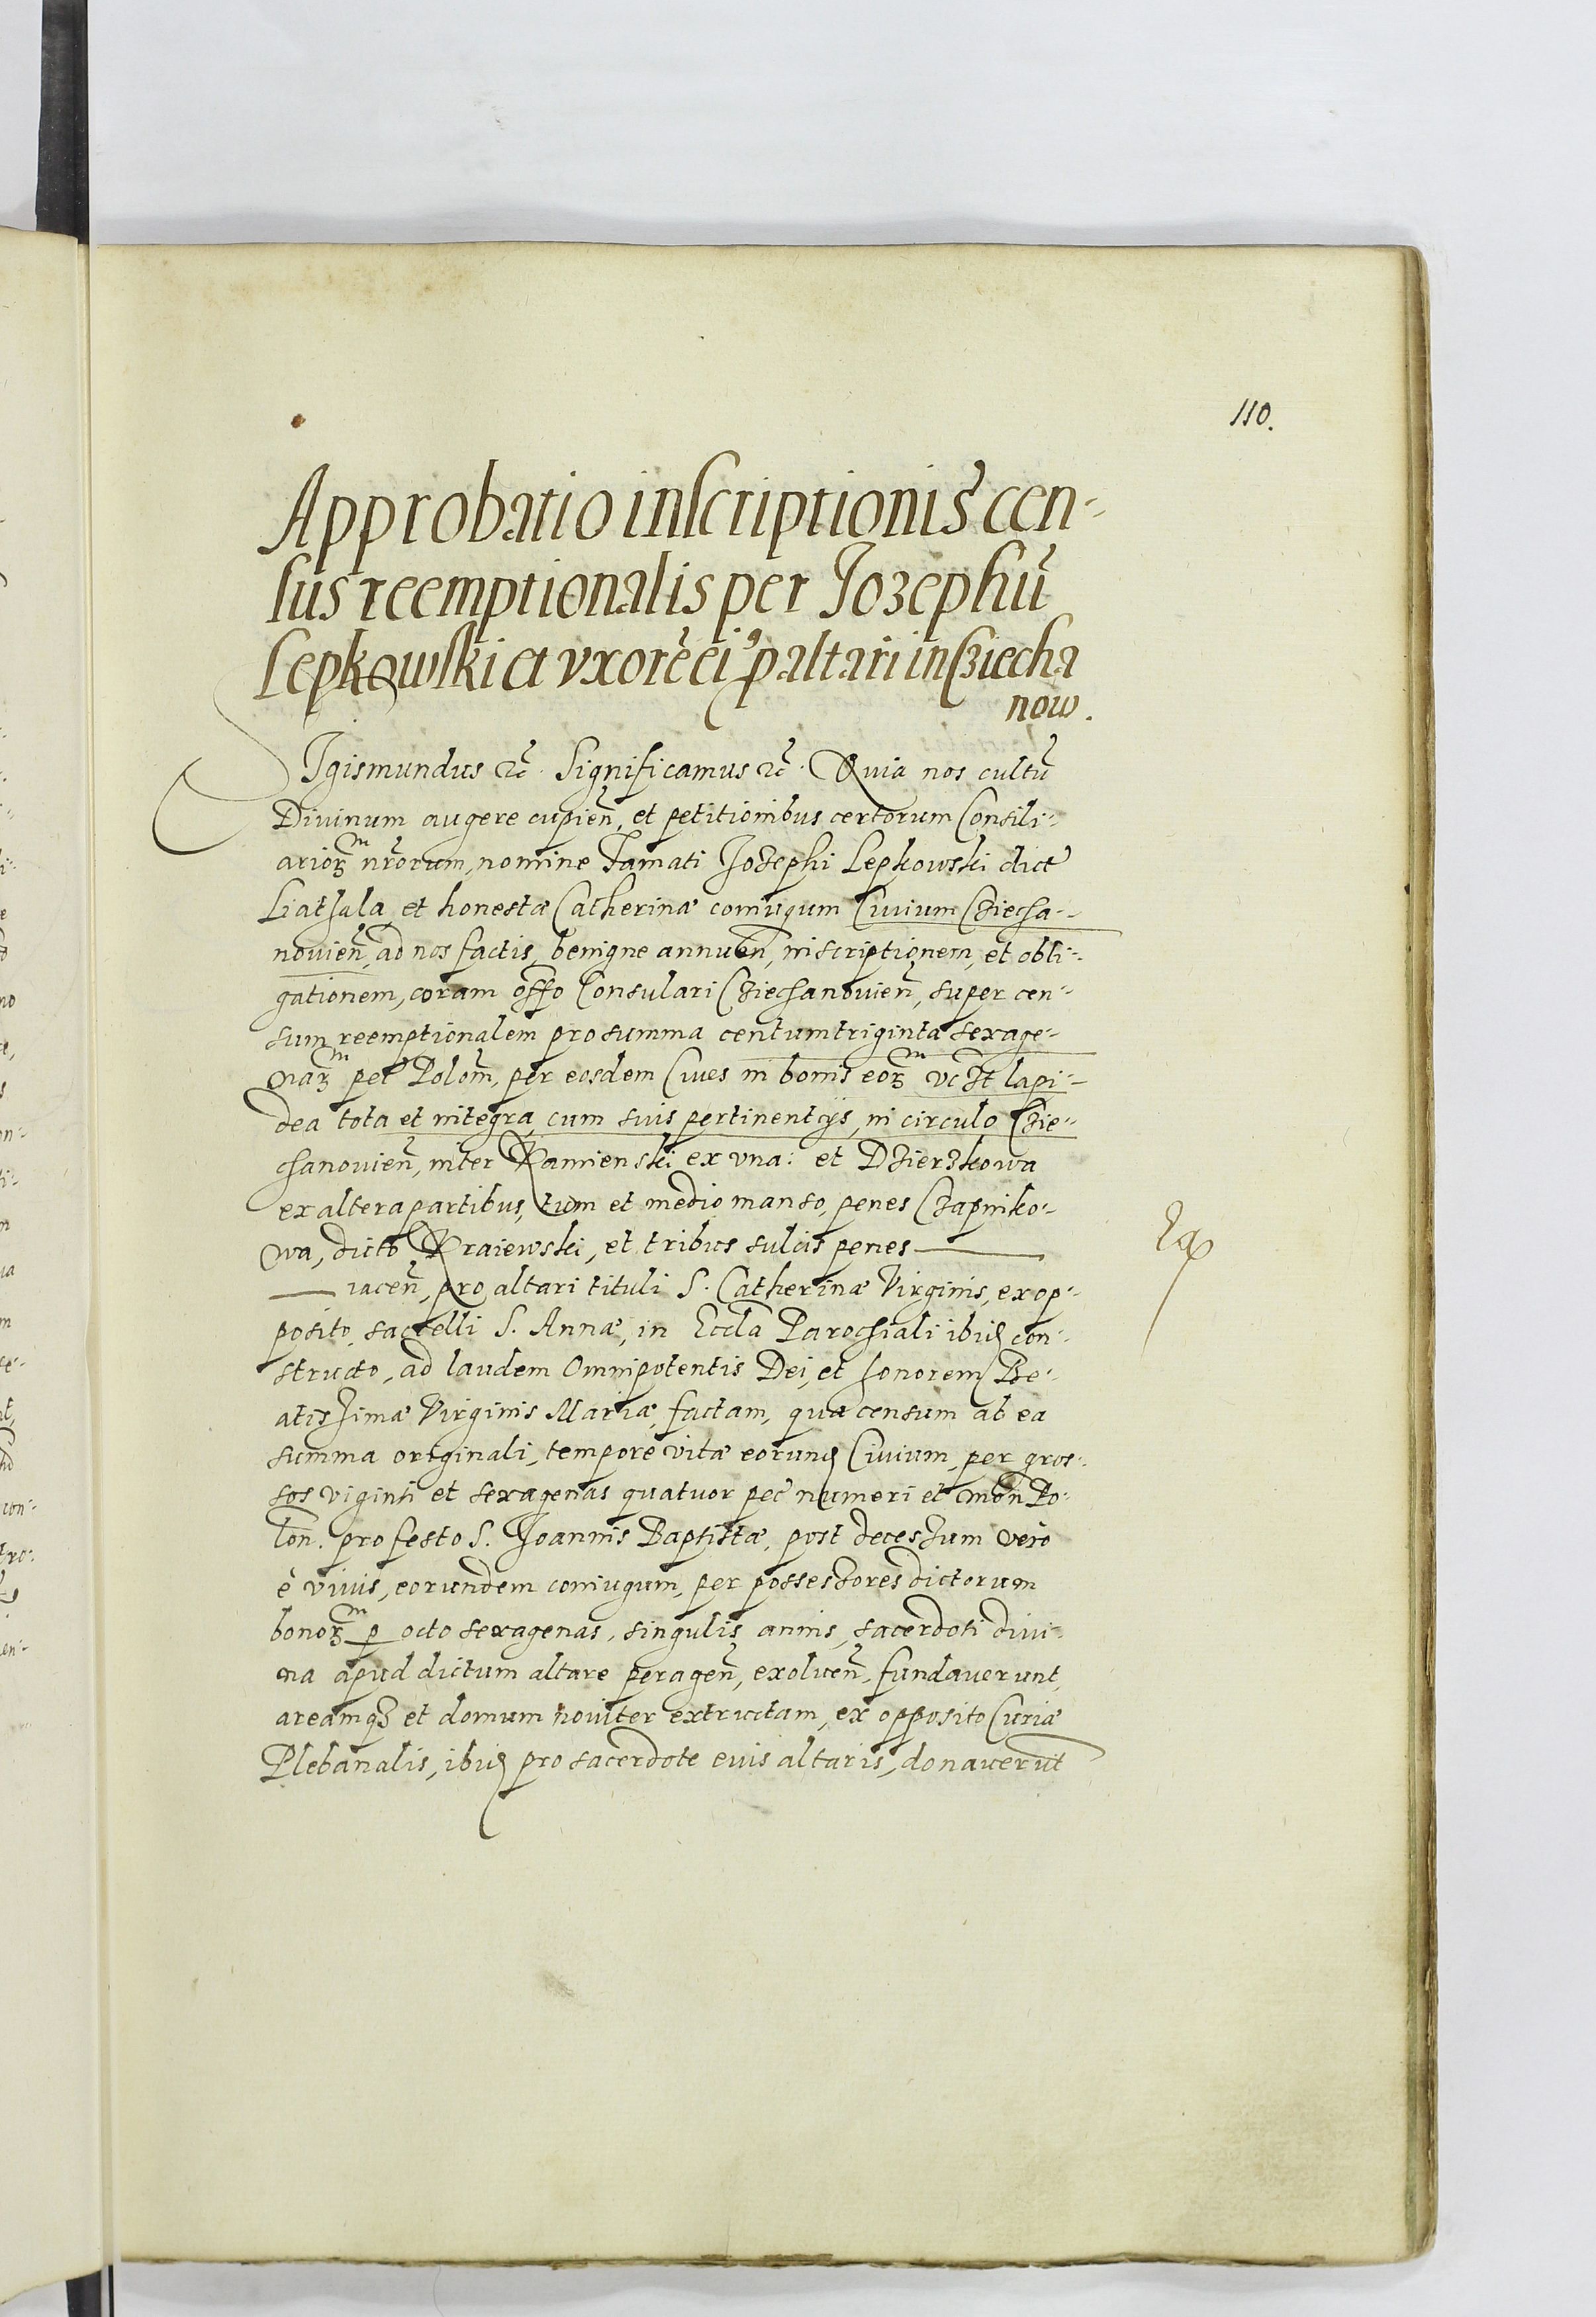 110.
Approbatio inscriptionis cen-
sus reemptionalis per Jozephũ
Lepkowski et vxorẽ ei⁹ p altari in Cziecha
now.
Sigismundus ꝛc̃. Significamus ꝛc̃. Quia nos cultũ
Diuinum augere cupieñ, et petitionibus certorum Consili-
arioꝝᵐ nr̃orum, nomine Famati Jozephi Lepkowski dict
Liatsala et honestæ Catherinæ coniugum Ciuium Cziecha-
nouieñ, ad nos factis, benigne annueñ, inscriptionem, et obli-
gationem, coram offo Consulari Cziechanouieñ, super cen-
sum reemptionalem pro summa centum triginta sexage-
naꝝᵐ pec Poloñ, per eosdem Ciues in bonis eoꝝᵐ vczt lapi-
dea tota et integra, cum suis pertinentijs, in circulo Czie-
chanouieñ, inter Kamienski ex vna: et Dzierzkowa
ex altera partibus, tum et medio manso, penes Czapniko-
wa, dicto Kraiewski, et tribus sulcis penes ———
— iaceñ, pro altari tituli S. Catherinæ Virginis, ex op-
posito sacelli S. Annæ, in Eccla Parochiali ibid con-
structo, ad laudem Omnipotentis Dei, et honorem Be-
atissimæ Virginis Mariæ factam, qua censum ab ea
summa originali, tempore vitæ eorund Ciuium, per gros-
sos viginti et sexagenas quatuor pec numeri et moñ Po-
loñ. pro festo S. Joannis Baptistæ, post decessum vero
è viuis, eorundem coniugum, per possessores dictorum
bonoꝝᵐ p octo sexagenas, singulis annis, sacerdoti diui-
na apud dictum altare perageñ, exolueñ, fundauerunt,
areamqꝫ et domum nouiter extructam, ex opposito Curiæ
Plebanalis, ibid pro sacerdote euis altaris, donauerũt